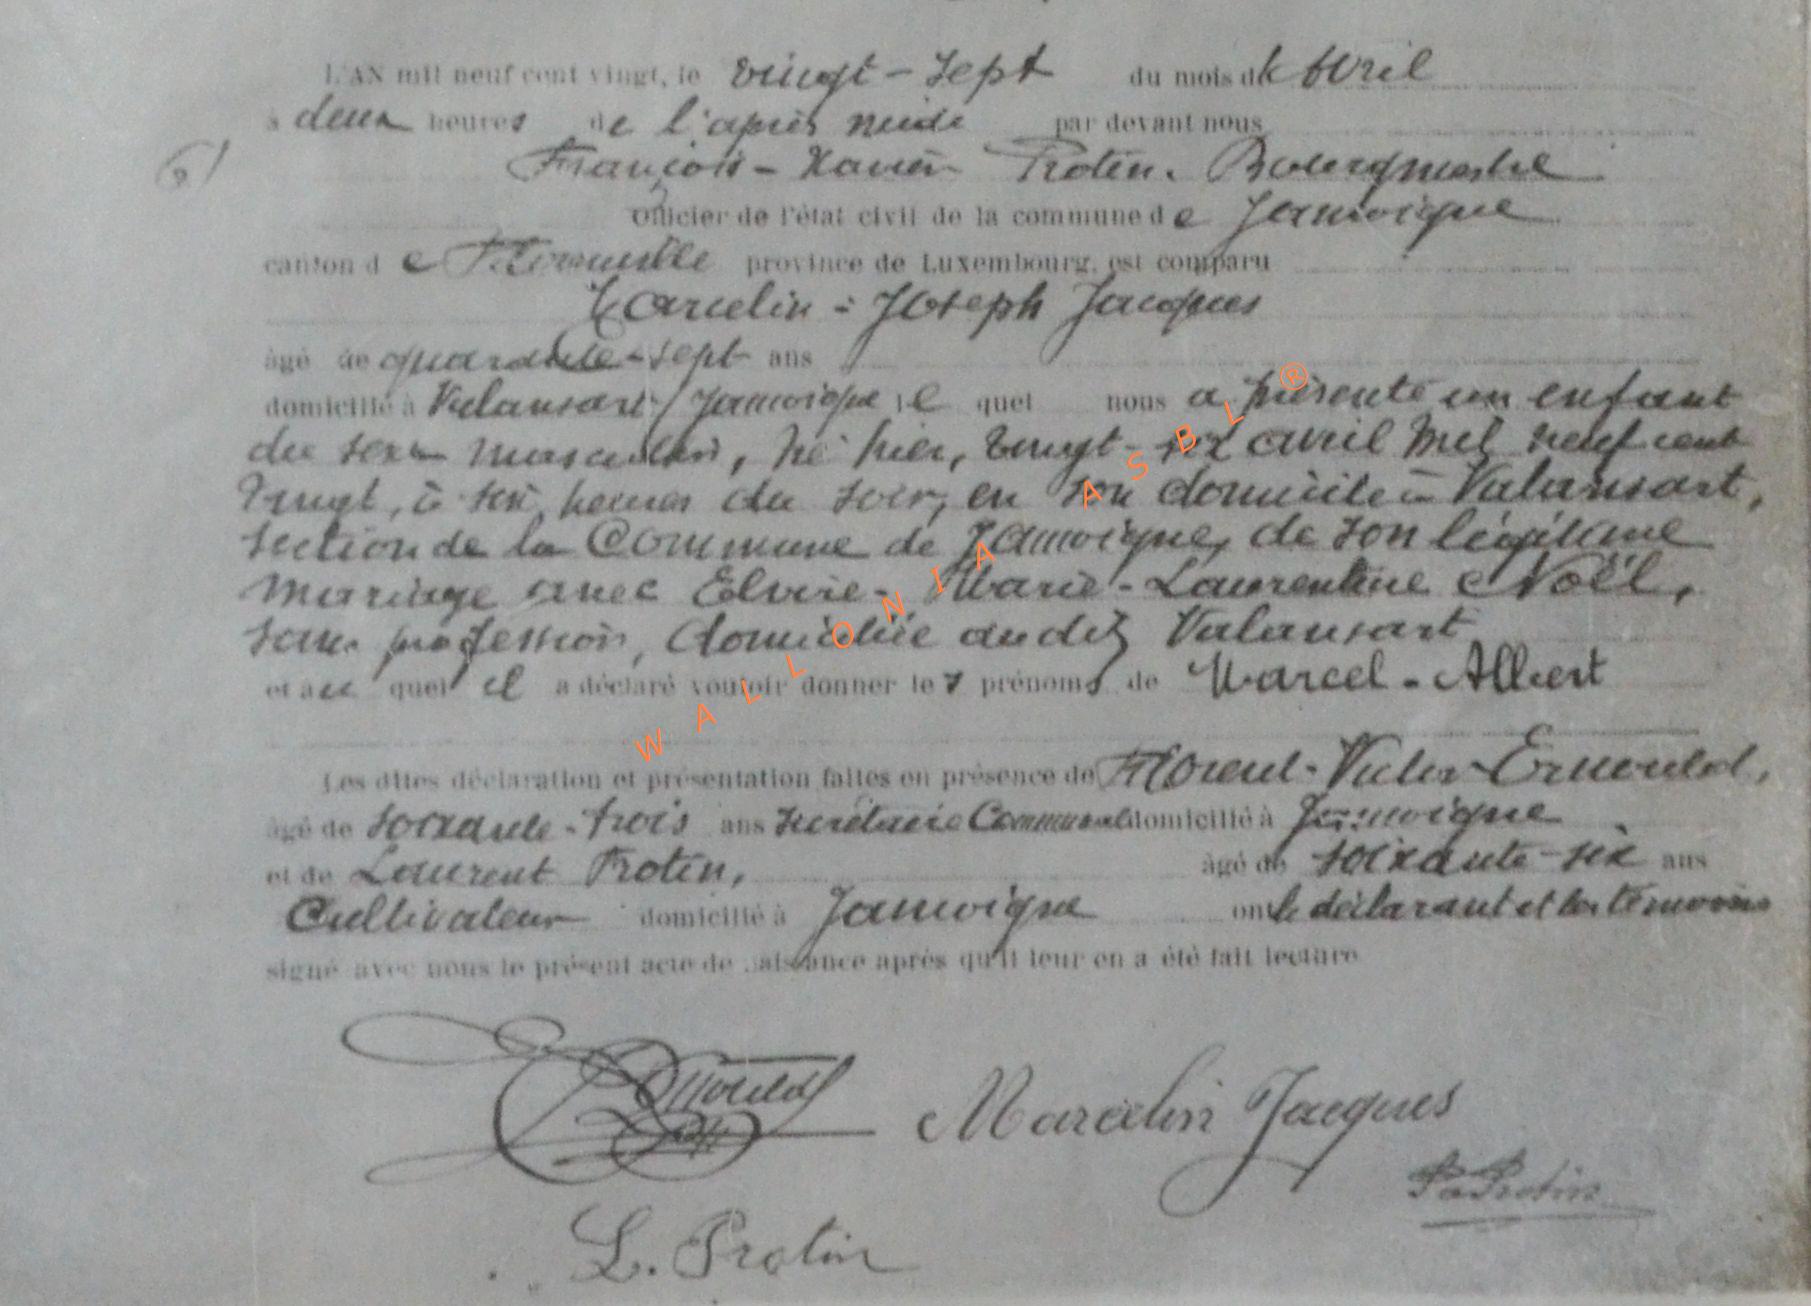 L'AN mil neuf cent vingt, le vingt-sept du mois d'Avril
à deux heures de l'après midi par devant nous
François-Xavier Protin, Bourgmestre
Officier de l'état civil de la commune de Jamoigne
canton de Florenville province de Luxembourg, est comparu
Marcelin-Joseph Jacques
âgé de quarante-sept ans
domicilié à Valansart/Jamoigne le quel nous a présenté un enfant
du sexe masculin, né hier, vingt-six avril mil neuf cent
vingt, à six heures du soir, en son domicile à Valansart,
section de la Commune de Jamoigne, de son légitime
mariage avec Elvire-Marie-Laurentine Noël,
sans profession, domiciliée audit Valansart
et au quel il a déclaré vouloir donner les prénoms de Marcel-Albert
Les dites déclaration et présentation faites en présence de Florent-Victor Ernould,
âgé de soixante-trois ans Secrétaire Communal domicilié à Jamoigne
et de Laurent Protin, âgé de soixante-six ans
Cultivateur domicilié à Jamoigne ont le déclarant et les témoins
signé avec nous le présent acte de naissance après qu'il leur en a été fait lecture
Ernould
Marcelin Jacques
Protin
L. Protin
WALLONIA ASBL®